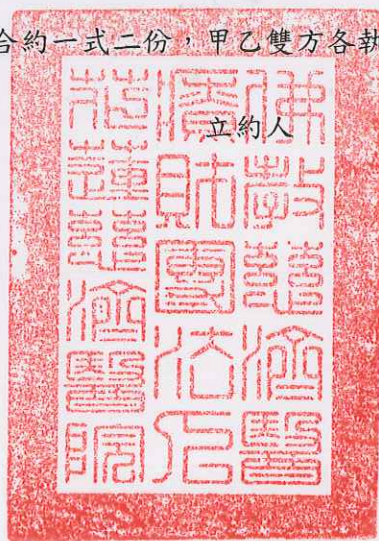 合約一式二份，甲乙雙方各執
立約人
佛教慈濟醫
療財團法人
花蓮慈濟醫院